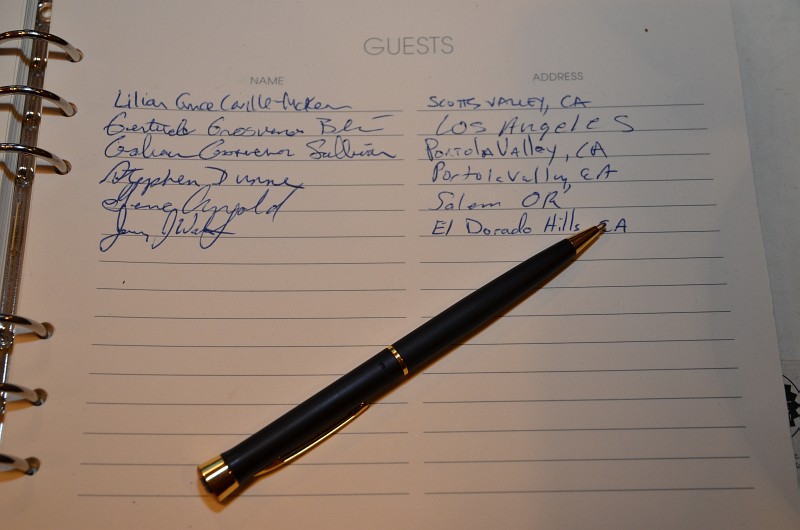 GUESTS
NAME ADDRESS
Lilian SCOTTS VALLEY, CA
Gertrude Grosvenor LOS ANgeleS
Grosvenor Sullivan PORTOLA Valley, CA
Stephen Dunne Portola Valley, CA
Gene Arnold Salem OR
Jerry El Dorado Hills CA